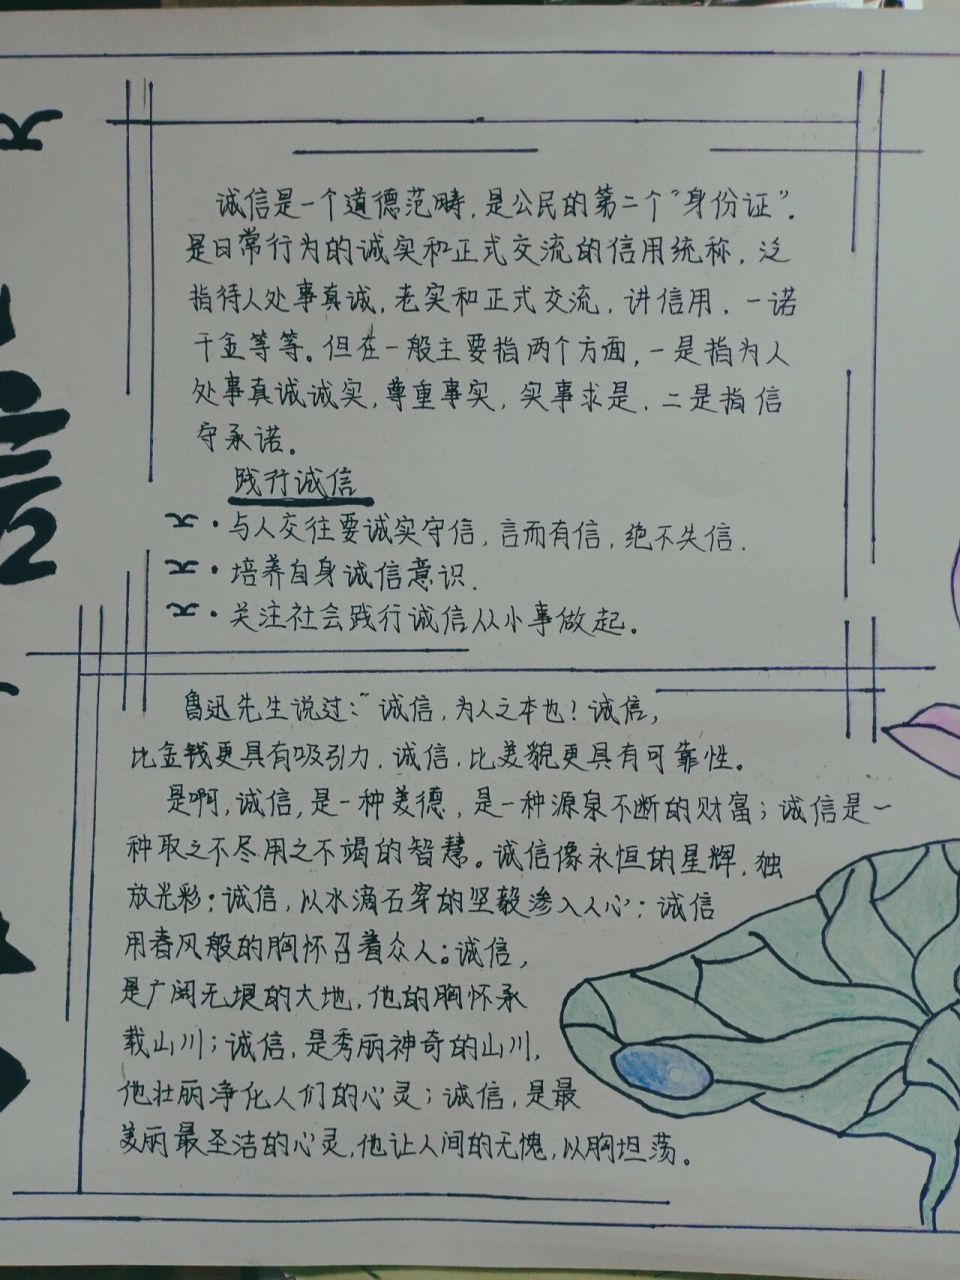 诚信是一个道德范畴,是公民的第二个“身份证”.
是日常行为的诚实和正式交流的信用统称,泛
指待人处事真诚,老实和正式交流,讲信用,一诺
千金等等。但在一般主要指两个方面,一是指为人
处事真诚诚实,尊重事实,实事求是,二是指信
守承诺。
践行诚信
·与人交往要诚实守信,言而有信,绝不失信.
·培养自身诚信意识.
·关注社会践行诚信从小事做起。
鲁迅先生说过:“诚信,为人之本也!诚信,
比金钱更具有吸引力,诚信,比美貌更具有可靠性。
是啊,诚信,是一种美德,是一种源泉不断的财富;诚信是一
种取之不尽用之不竭的智慧。诚信像永恒的星辉,独
放光彩;诚信,以水滴石穿的坚毅渗入人心;诚信
用春风般的胸怀召着众人。诚信,
是广阔无垠的大地,他的胸怀承
载山川;诚信,是秀丽神奇的山川,
他壮丽净化人们的心灵;诚信,是最
美丽最圣洁的心灵,他让人间的无愧,以胸坦荡。